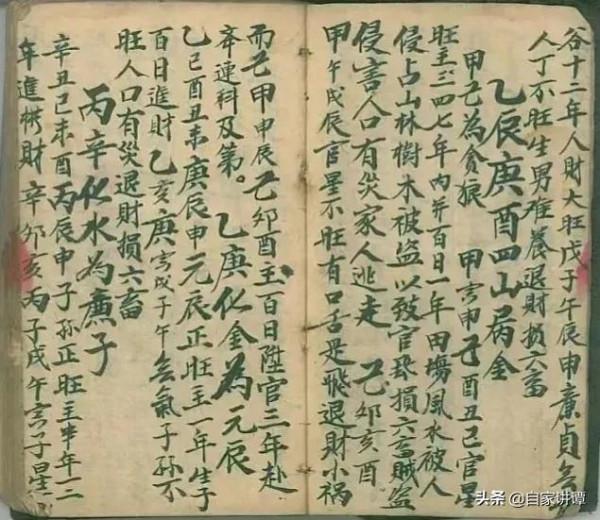 谷十二年人財大旺戊子午辰申廣貞
人丁不旺生男难養退財損六畜
乙辰庚酉四山金
甲己為貪狼 甲寅申己酉丑巳官星
旺主三四七年內并百日一年田塲風水被人
侵占山林樹木被盗以致官非損六畜賊盗
侵害人口有災家人逃走 己卯亥酉
甲午戌辰官星不旺有口舌是飛退財小禍
而己甲申辰己卯酉主百日陞官三年赴
斉連科及第。 乙庚化金為元辰
乙巳酉丑未庚辰申元辰正旺主一年生子
百日進財 乙亥庚寅戌子午無氣子孫不
旺人口有災退財損六畜
丙辛化水為廉子
辛丑巳未酉丙辰申子孫正旺主半年一二
年進横財 辛卯亥丙子戌午寅子星
头条 @自家讲谭